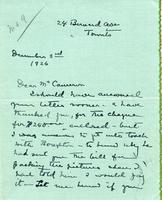 24 Bernard Ave
Toronto
December 3rd
1926
Dear Mr Cameron
I should have answered
your letter sooner - & have
thanked you, for the cheque
for $260 enclosed - but
I was anxious to get into touch
with Houghton - to know why he
had sent you the bill for
packing the pictures when I
had told him I would pay
it - Let me know if you